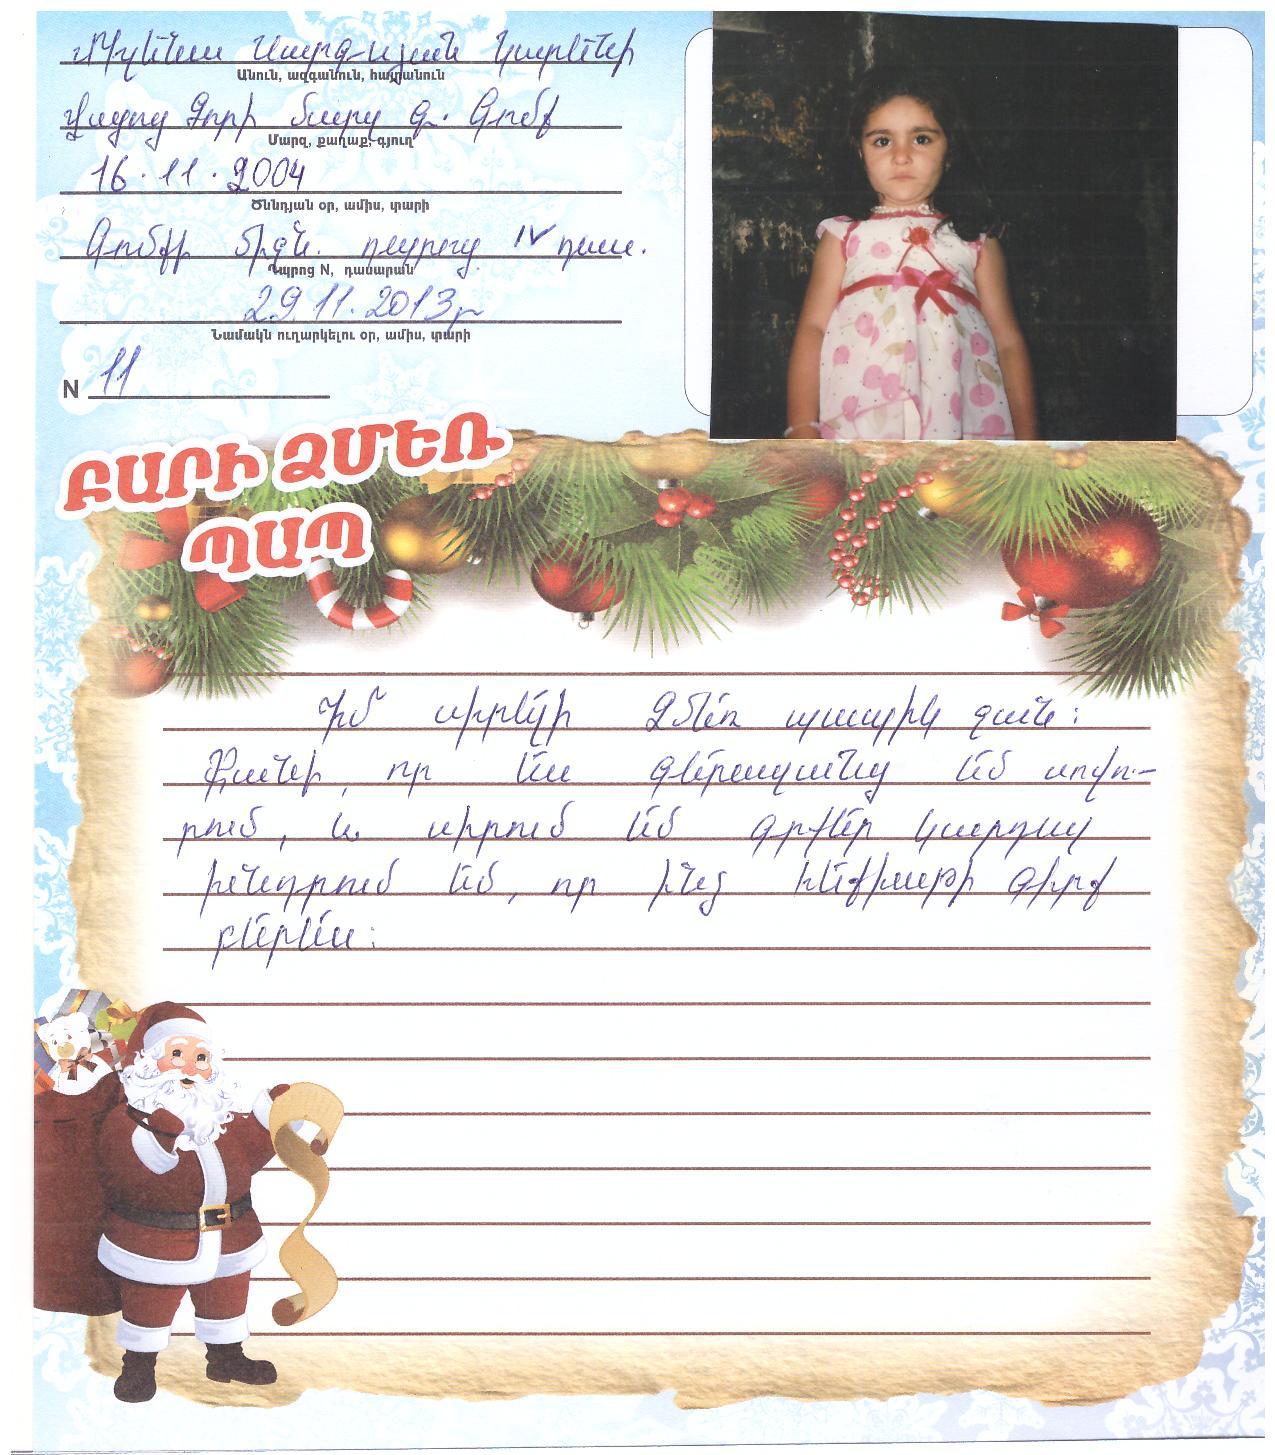 Միլենա Սարգսյան Կարենի
Անուն, ազգանուն, հայրանուն
Վայոց Ձորի մարզ գ. Գոմք
Մարզ, քաղաք, գյուղ
16.11.2004
Ծննդյան օր, ամիս, տարի
Գոմքի միջն. դպրոց IV դաս.
Դպրոց N, դասարան
29.11.2013թ
Նամակն ուղարկելու օր, ամիս, տարի
N 11
ԲԱՐԻ ՁՄԵՌ
ՊԱՊ
Իմ սիրելի Ձմեռ պապիկ ջան:
Քանի, որ ես գերազանց եմ սովո-
րում, և սիրում եմ գրքեր կարդալ
խնդրում եմ, որ ինձ հեքիաթի գիրք
բերես: